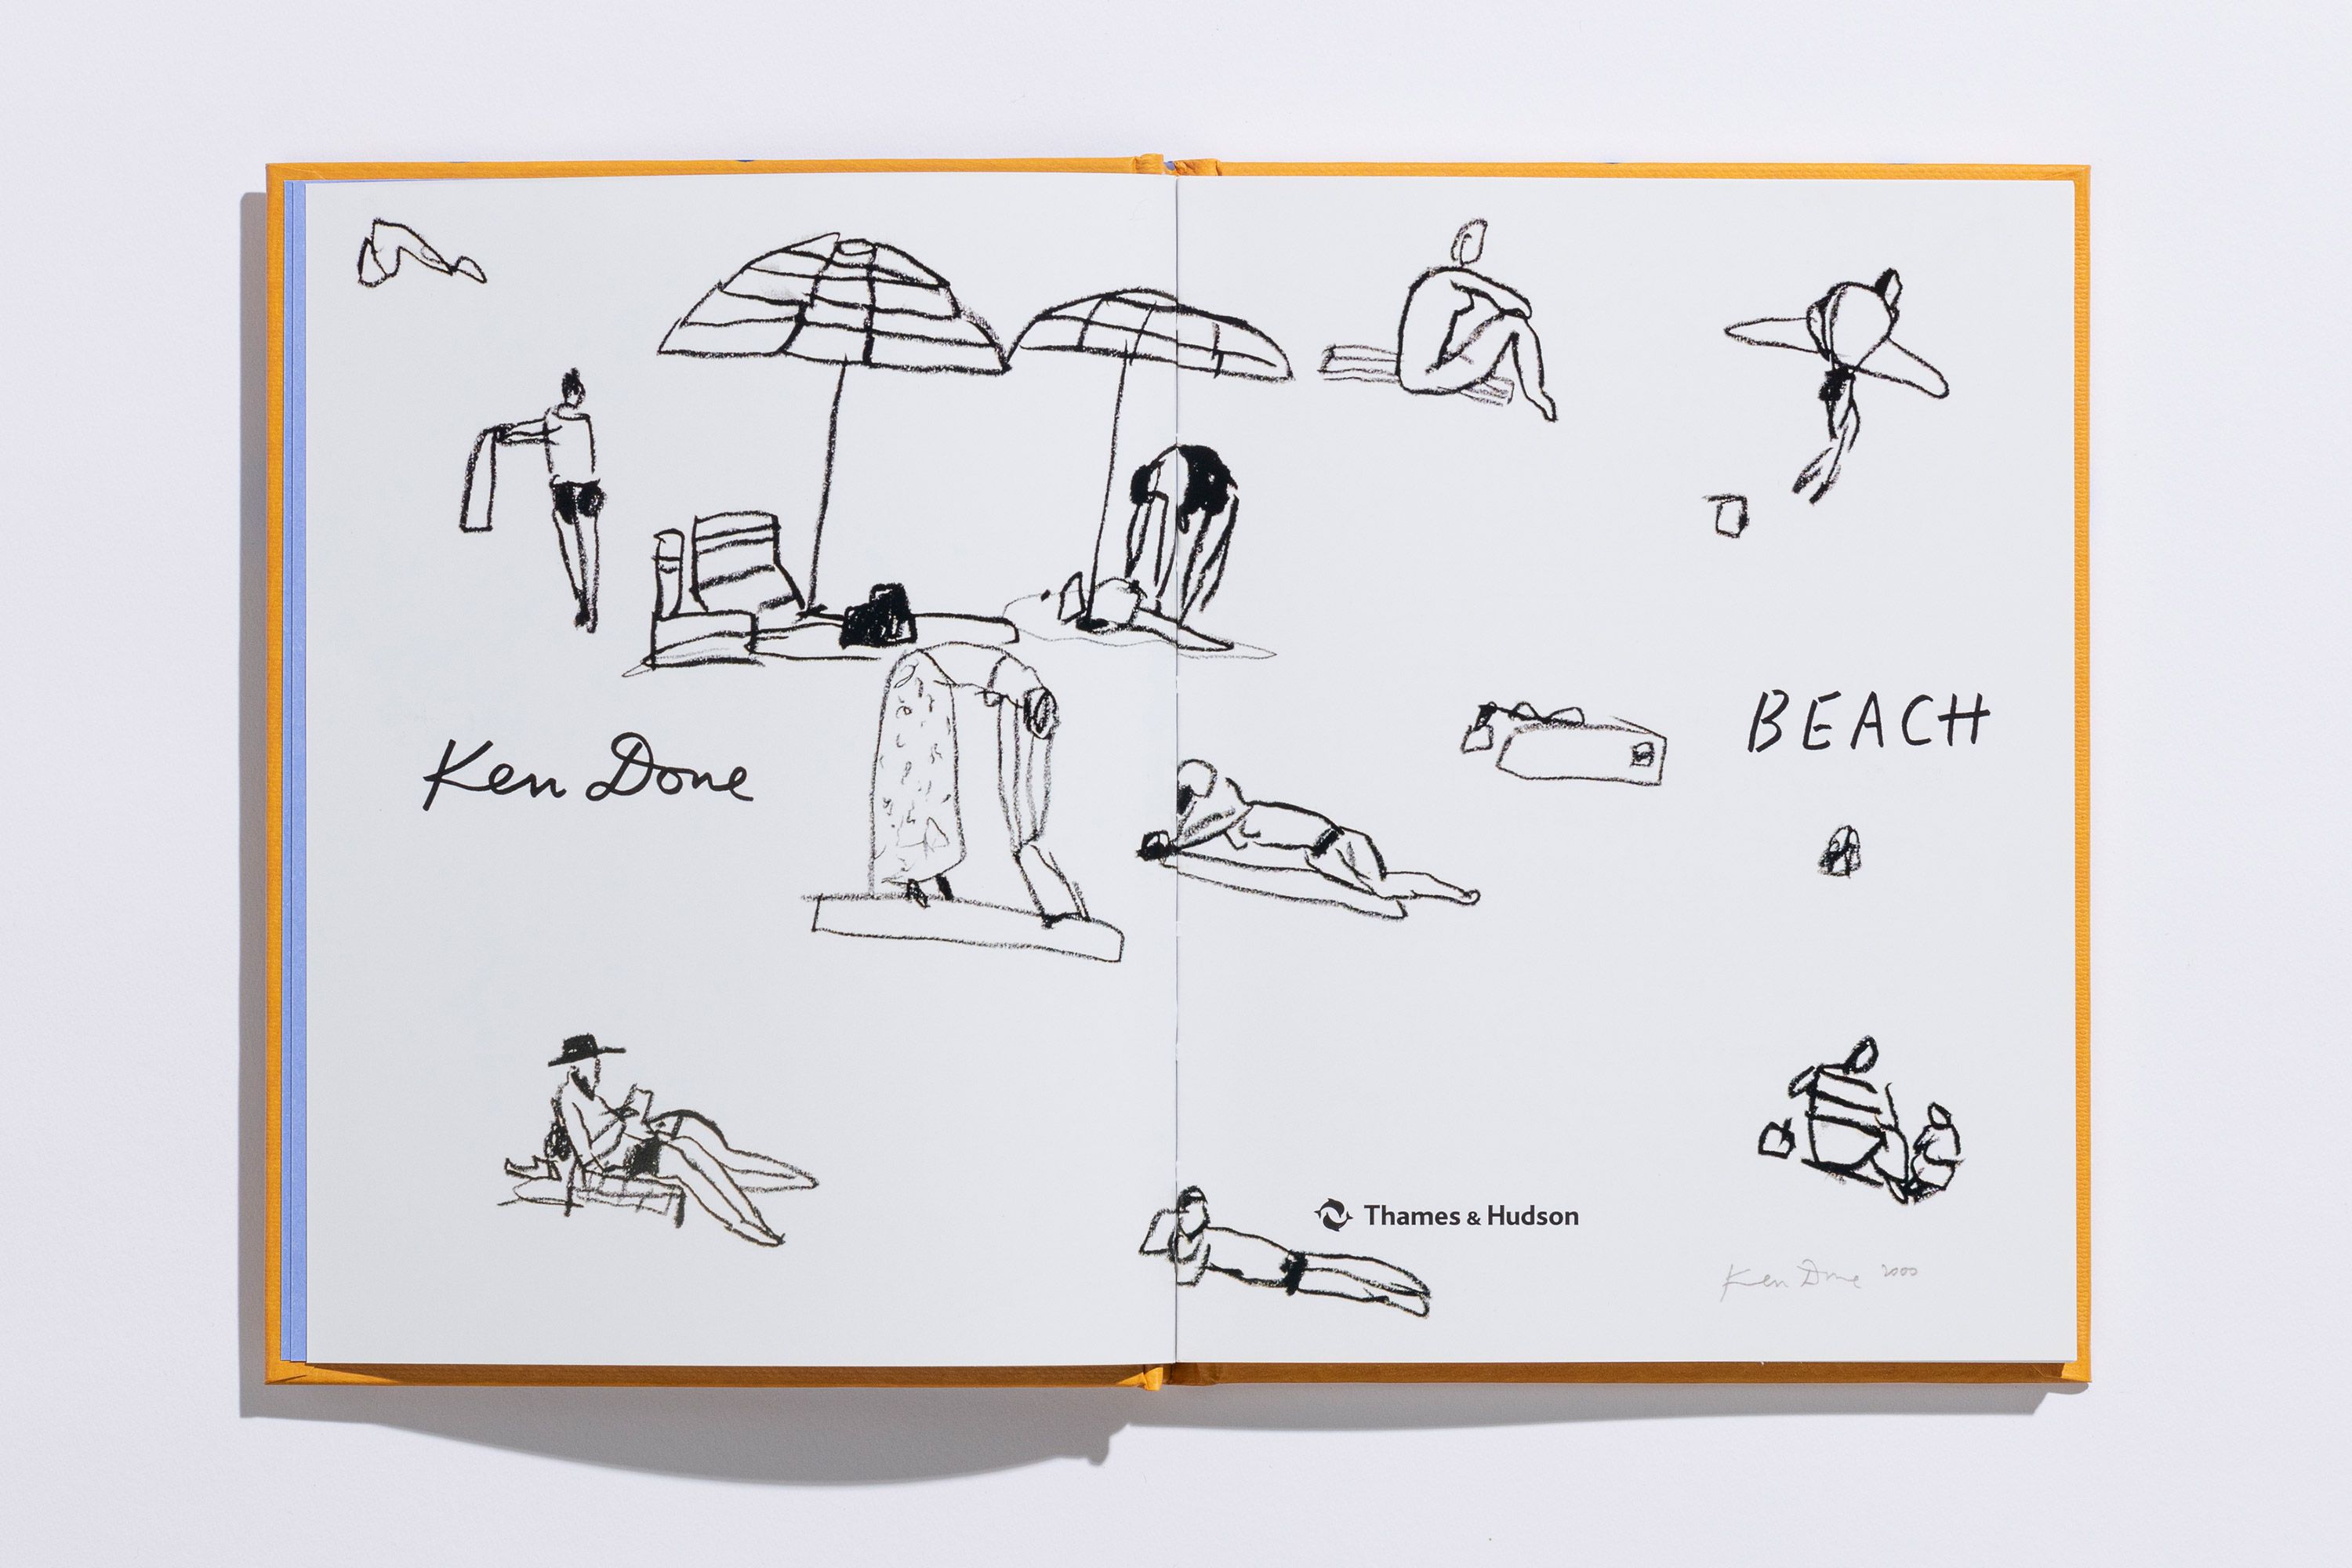 Ken Done
BEACH
Thames & Hudson
Ken Done 2000